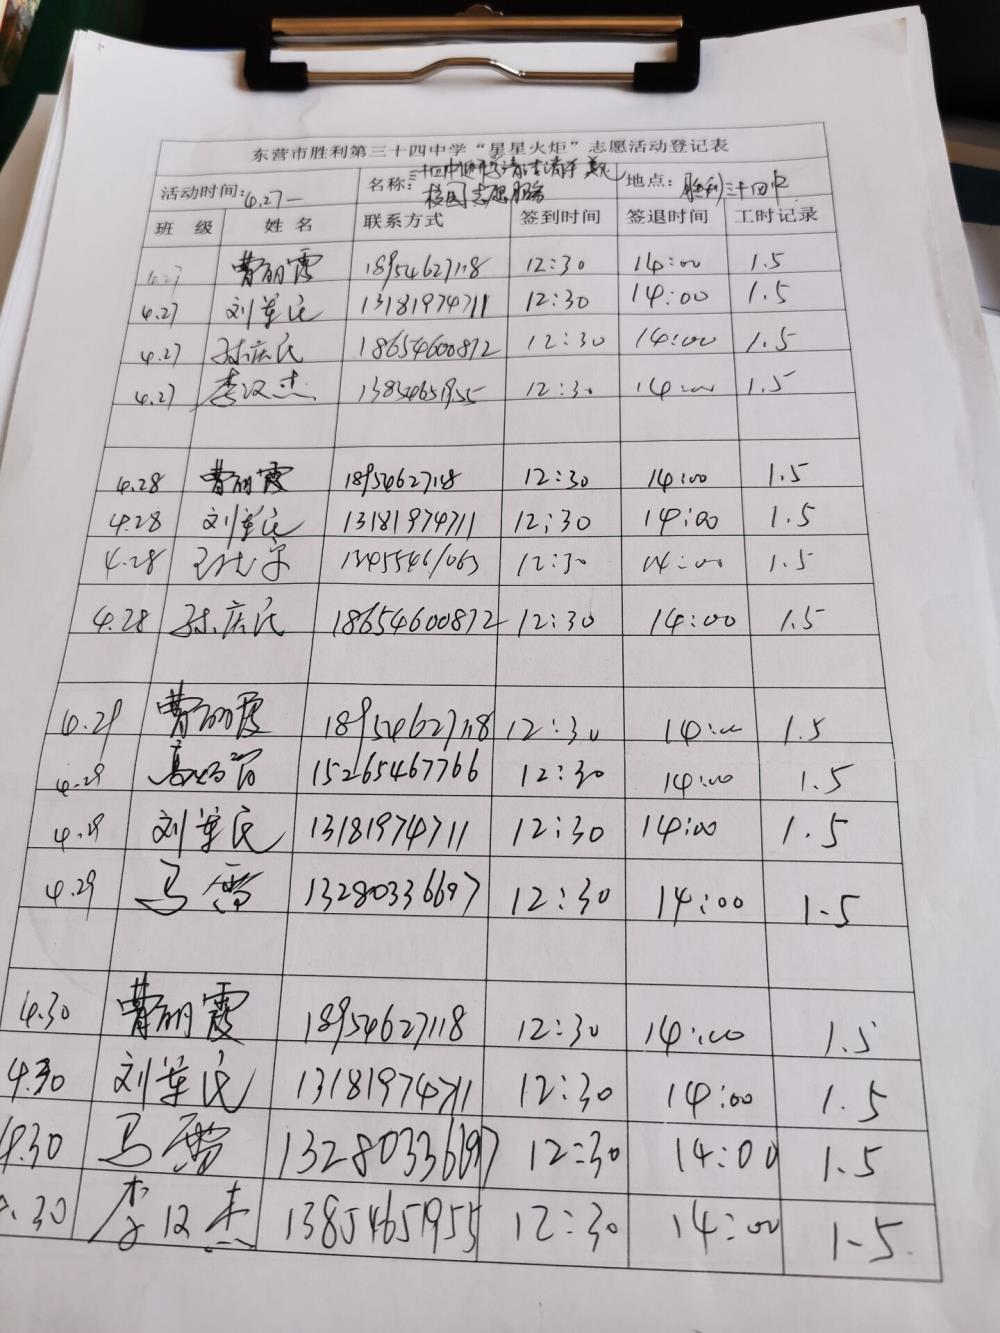 东营市胜利第三十四中学“星星火炬”志愿活动登记表
活动时间：4.27— 名称：三十四中 清洁 校园志愿服务 地点：胜利三十四中
班 级 姓 名 联系方式 签到时间 签退时间 工时记录
4.27 曹丽霞 18954627118 12:30 14:00 1.5
4.27 刘军民 13181974711 12:30 14:00 1.5
4.27 孙庆民 18654600872 12:30 14:00 1.5
4.27 李汉杰 13854651955 12:30 14:00 1.5
4.28 曹丽霞 18954627118 12:30 14:00 1.5
4.28 刘军民 13181974711 12:30 14:00 1.5
4.28 12:30 14:00 1.5
4.28 孙庆民 18654600872 12:30 14:00 1.5
4.29 曹丽霞 18954627118 12:30 14:00 1.5
4.29 高 15265467766 12:30 14:00 1.5
4.29 刘军民 13181974711 12:30 14:00 1.5
4.29 马雷 13280336697 12:30 14:00 1.5
4.30 曹丽霞 18954627118 12:30 14:00 1.5
4.30 刘军民 13181974711 12:30 14:00 1.5
4.30 马雷 13280336697 12:30 14:00 1.5
4.30 李汉杰 13854651955 12:30 14:00 1.5